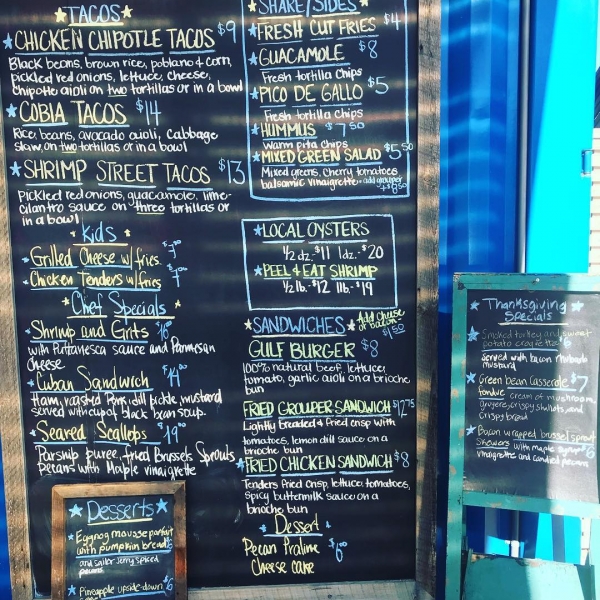 TACOS
CHICKEN CHIPOTLE TACOS $9
Black beans, brown rice, poblano & corn,
pickled red onions, lettuce, cheese,
chipotle aioli on two tortillas or in a bowl
COBIA TACOS $14
Rice, beans, avocado aioli, Cabbage
Slaw, on two tortillas or in a bowl
SHRIMP STREET TACOS $13
Pickled red onions, guacamole, lime-
cilantro sauce on three tortillas or
in a bowl
Kids
Grilled Cheese w/ fries
Chicken Tenders w/ fries
Chef Specials
Shrimp and Grits
with Puttanesca sauce and Parmesan
Cheese
Cuban Sandwich $14
Ham, roasted Pork, dill pickle, mustard
served with cup of black bean soup
Seared Scallops $19
Parsnip puree, fried Brussels Sprouts
pecans with Maple vinaigrette
SHARE/SIDES
FRESH CUT FRIES $4
GUACAMOLE $8
Fresh tortilla chips
PICO DE GALLO $5
Fresh tortilla chips
HUMMUS $7.50
Warm pita chips
MIXED GREEN SALAD $5.50
Mixed greens, cherry tomatoes
balsamic vinaigrette - add grouper
LOCAL OYSTERS
1/2 dz. $11 1dz. $20
PEEL & EAT SHRIMP
1/2 lb. $12 1lb. $19
SANDWICHES Add cheese
or bacon $1.50
GULF BURGER $8
100% natural beef, lettuce,
tomato, garlic aioli on a brioche
bun
FRIED GROUPER SANDWICH $12.75
Lightly breaded & fried crisp with
tomatoes, lemon dill sauce on a
brioche bun
FRIED CHICKEN SANDWICH $8
Tenders fried crisp, lettuce, tomatoes,
spicy buttermilk sauce on a
brioche bun
Dessert
Pecan Praline $6.00
Cheese cake
Desserts
Eggnog mousse parfait
with pumpkin bread
and sailor jerry spiced
pecans
Pineapple upside-down $6
Thanksgiving
Specials
Smoked turkey and sweet
potato croquettes $6
served with bacon
mustard
Green bean casserole $7
fondue cream of mushroom,
gruyere, crispy shallots, and
crispy bread
Bacon wrapped brussel sprout
skewers with maple $6
vinaigrette and candied pecans